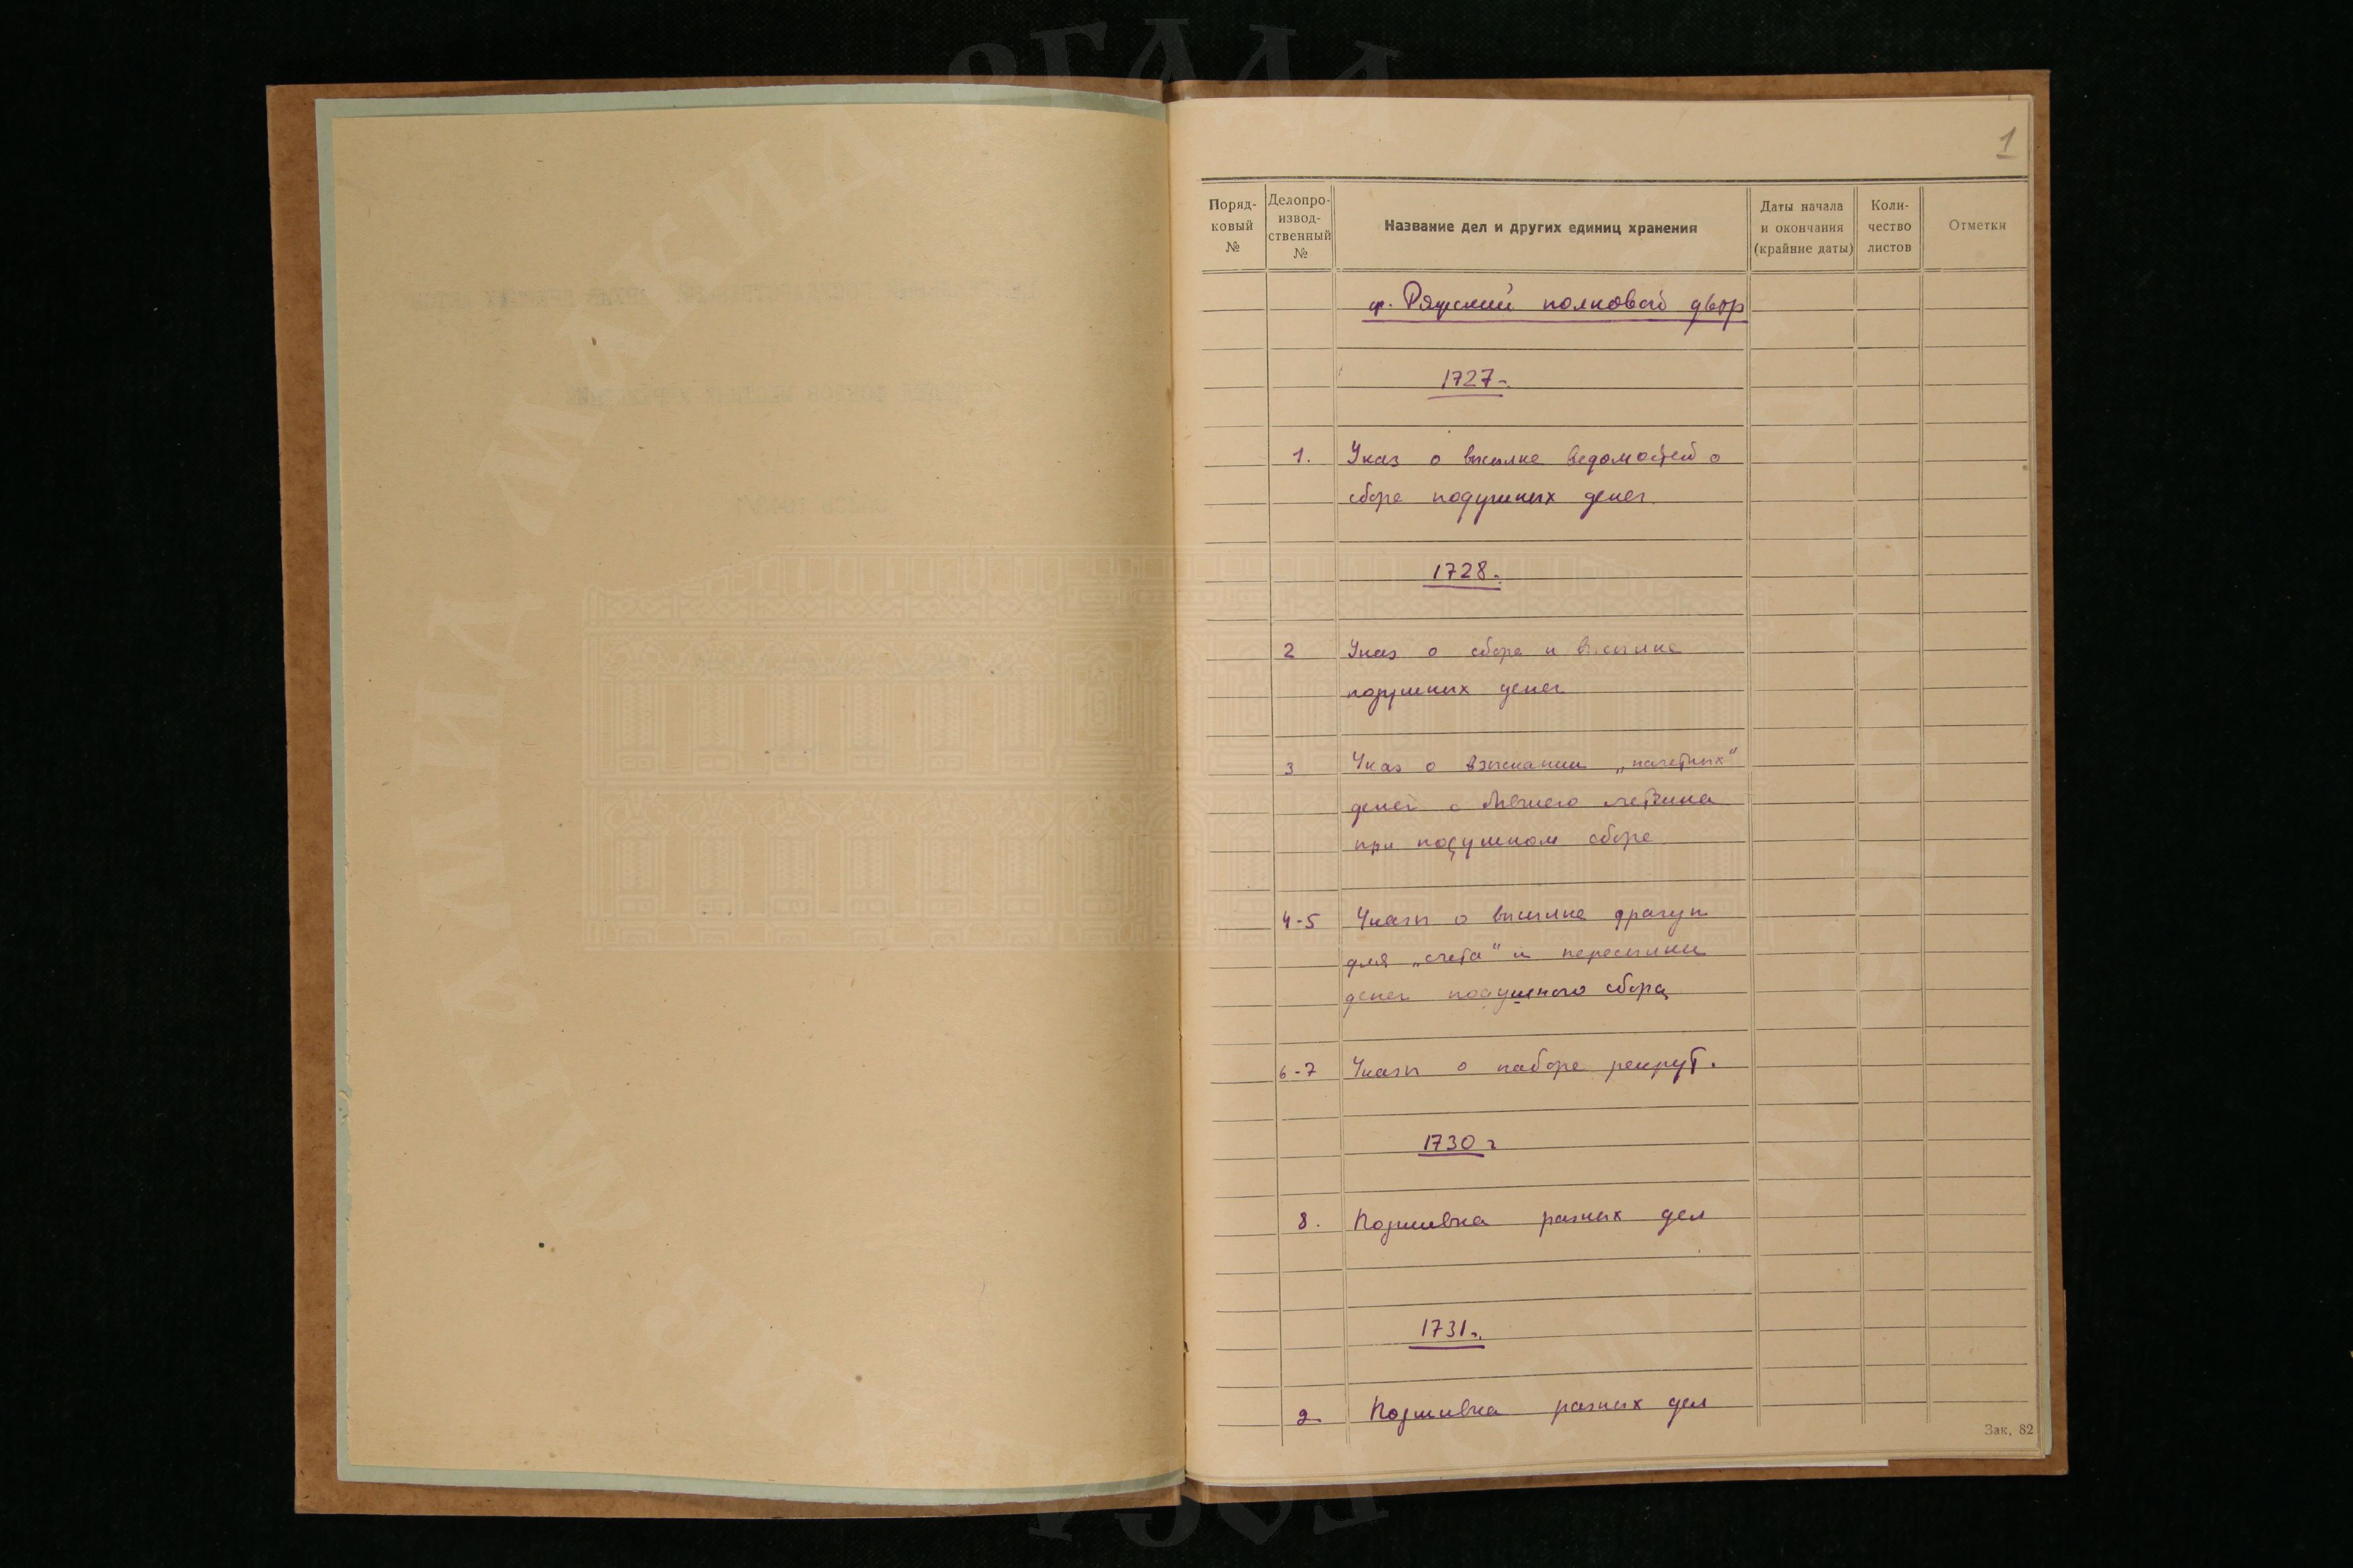 1
Поряд-
ковый
№
Делопро-
извод-
ственный
№
Название дел и других единиц хранения
Даты начала
и окончания
(крайние даты)
Коли-
чество
листов
Отметки
ф. Ряжский полковой двор
1727 г.
1. Указ о высылке ведомостей о
сборе подушных денег.
1728 г.
2 Указ о сборе и высылке
подушных денег
3 Указ о взыскании „начетных"
денег с бывшего
при подушном сборе
4-5 Указы о высылке драгун
для „счета" и пересылки
денег подушного сбора
6-7 Указы о наборе рекрут.
1730 г
8. Подшивка разных дел
1731 г.
9 Подшивка разных дел
Зак. 82
РГАДА